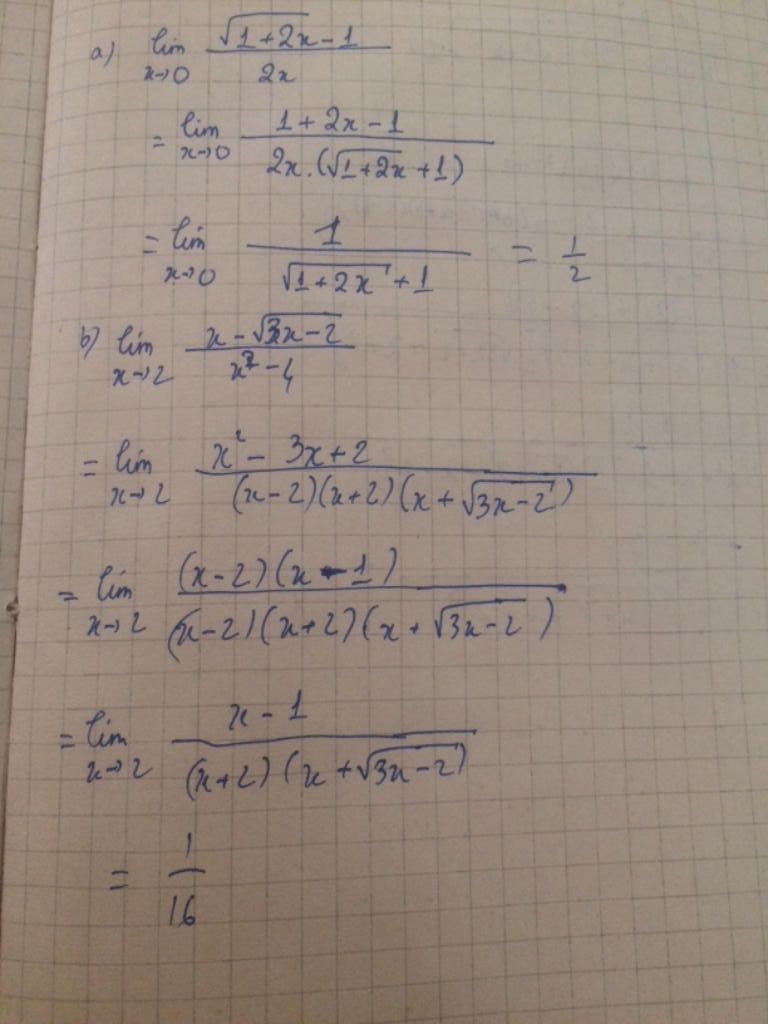 a) lim x→0 (√(1+2x) - 1) / (2x)
= lim x→0 (1+2x-1) / (2x.(√(1+2x) + 1))
= lim x→0 1 / (√(1+2x) + 1) = 1/2
b) lim x→2 (x - √(3x-2)) / (x² - 4)
= lim x→2 (x² - 3x + 2) / ((x-2)(x+2)(x + √(3x-2)))
= lim x→2 ((x-2)(x-1)) / ((x-2)(x+2)(x + √(3x-2)))
= lim x→2 (x-1) / ((x+2)(x + √(3x-2)))
= 1/16